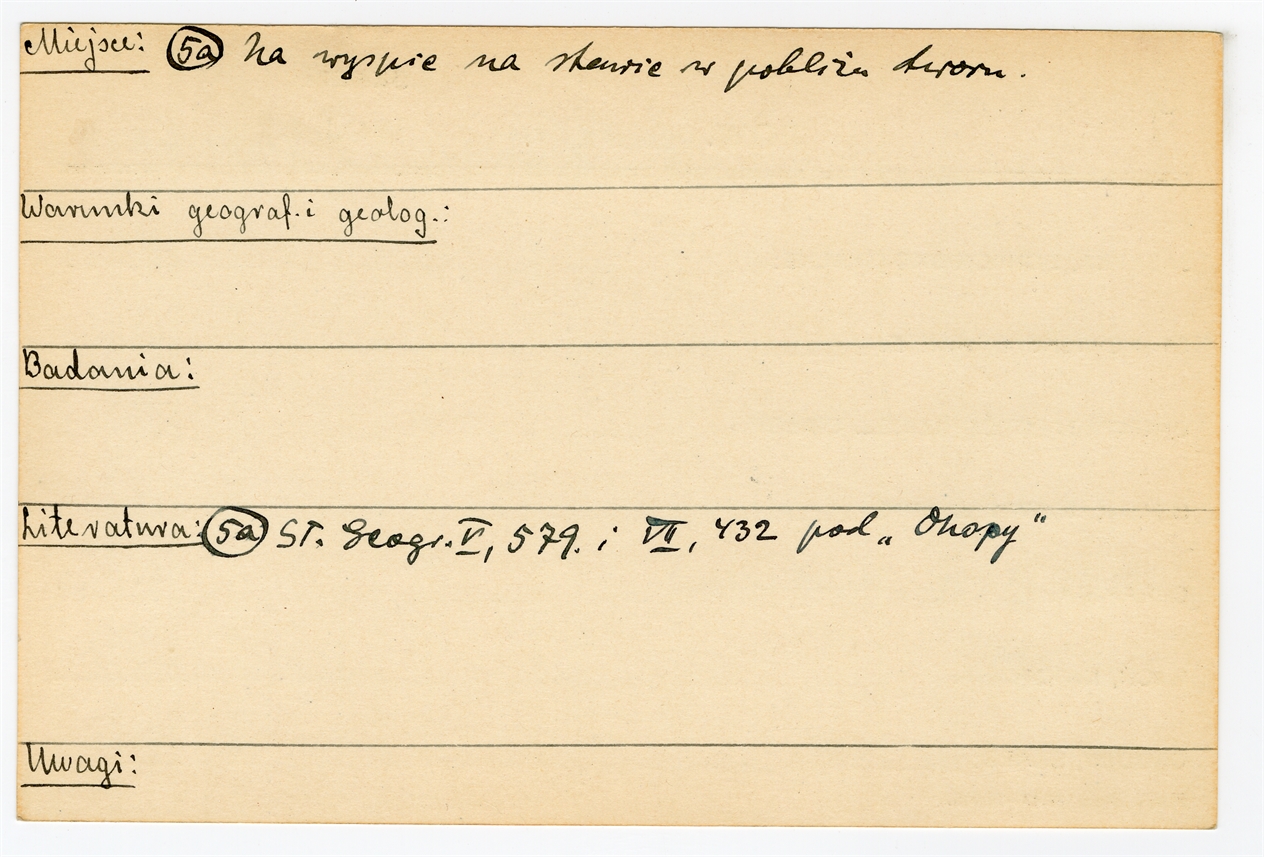 Miejsce: 5a Na wyspie na stawie w pobliżu dworu.
Warunki geograf. i geolog.:
Badania:
Literatura: 5a Sł. Geogr. V, 579. i VII, 432 pod „Okopy"
Uwagi: